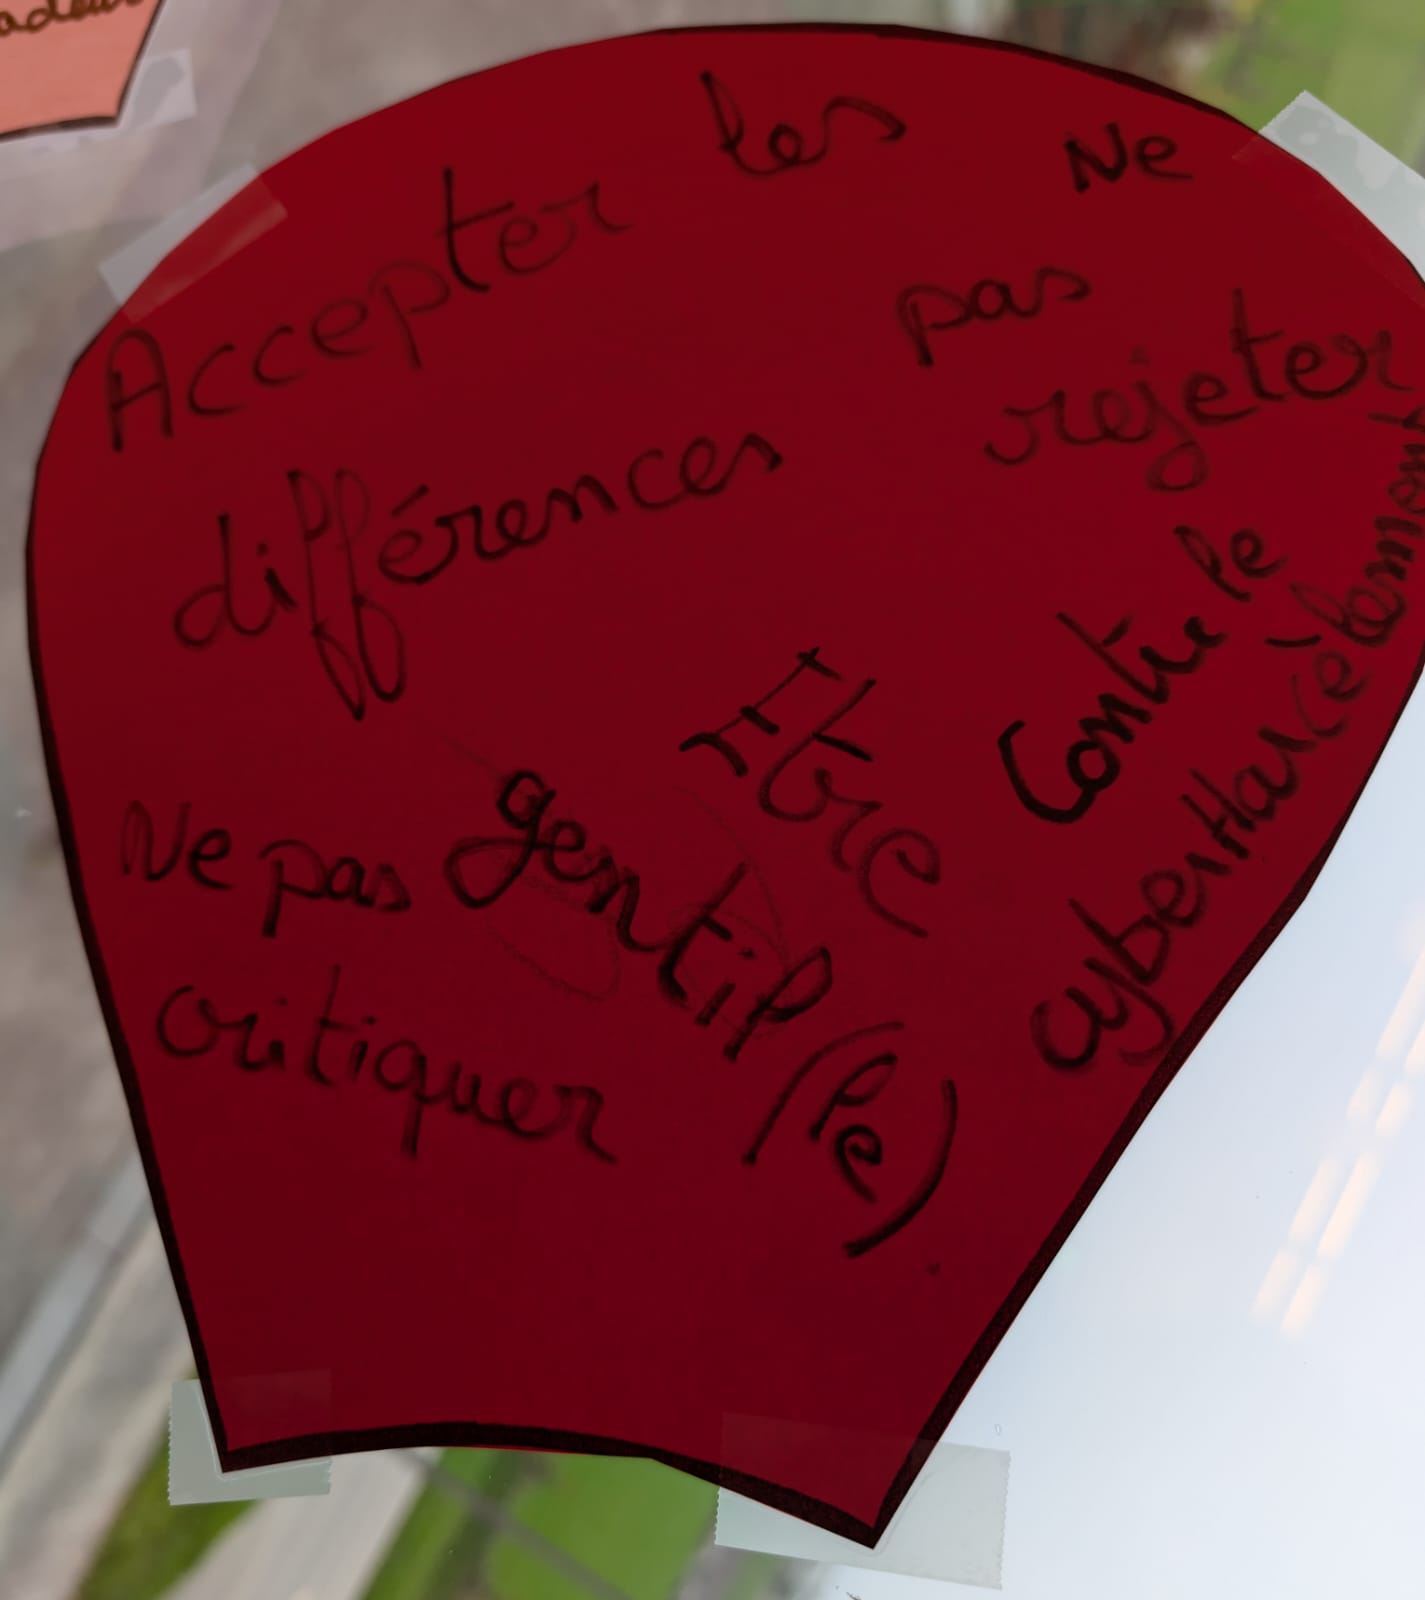 Accepter les
différences
Ne
pas
rejeter
Contre le
cyberHarcèlement
Etre
gentil
(le)
Ne pas
critiquer